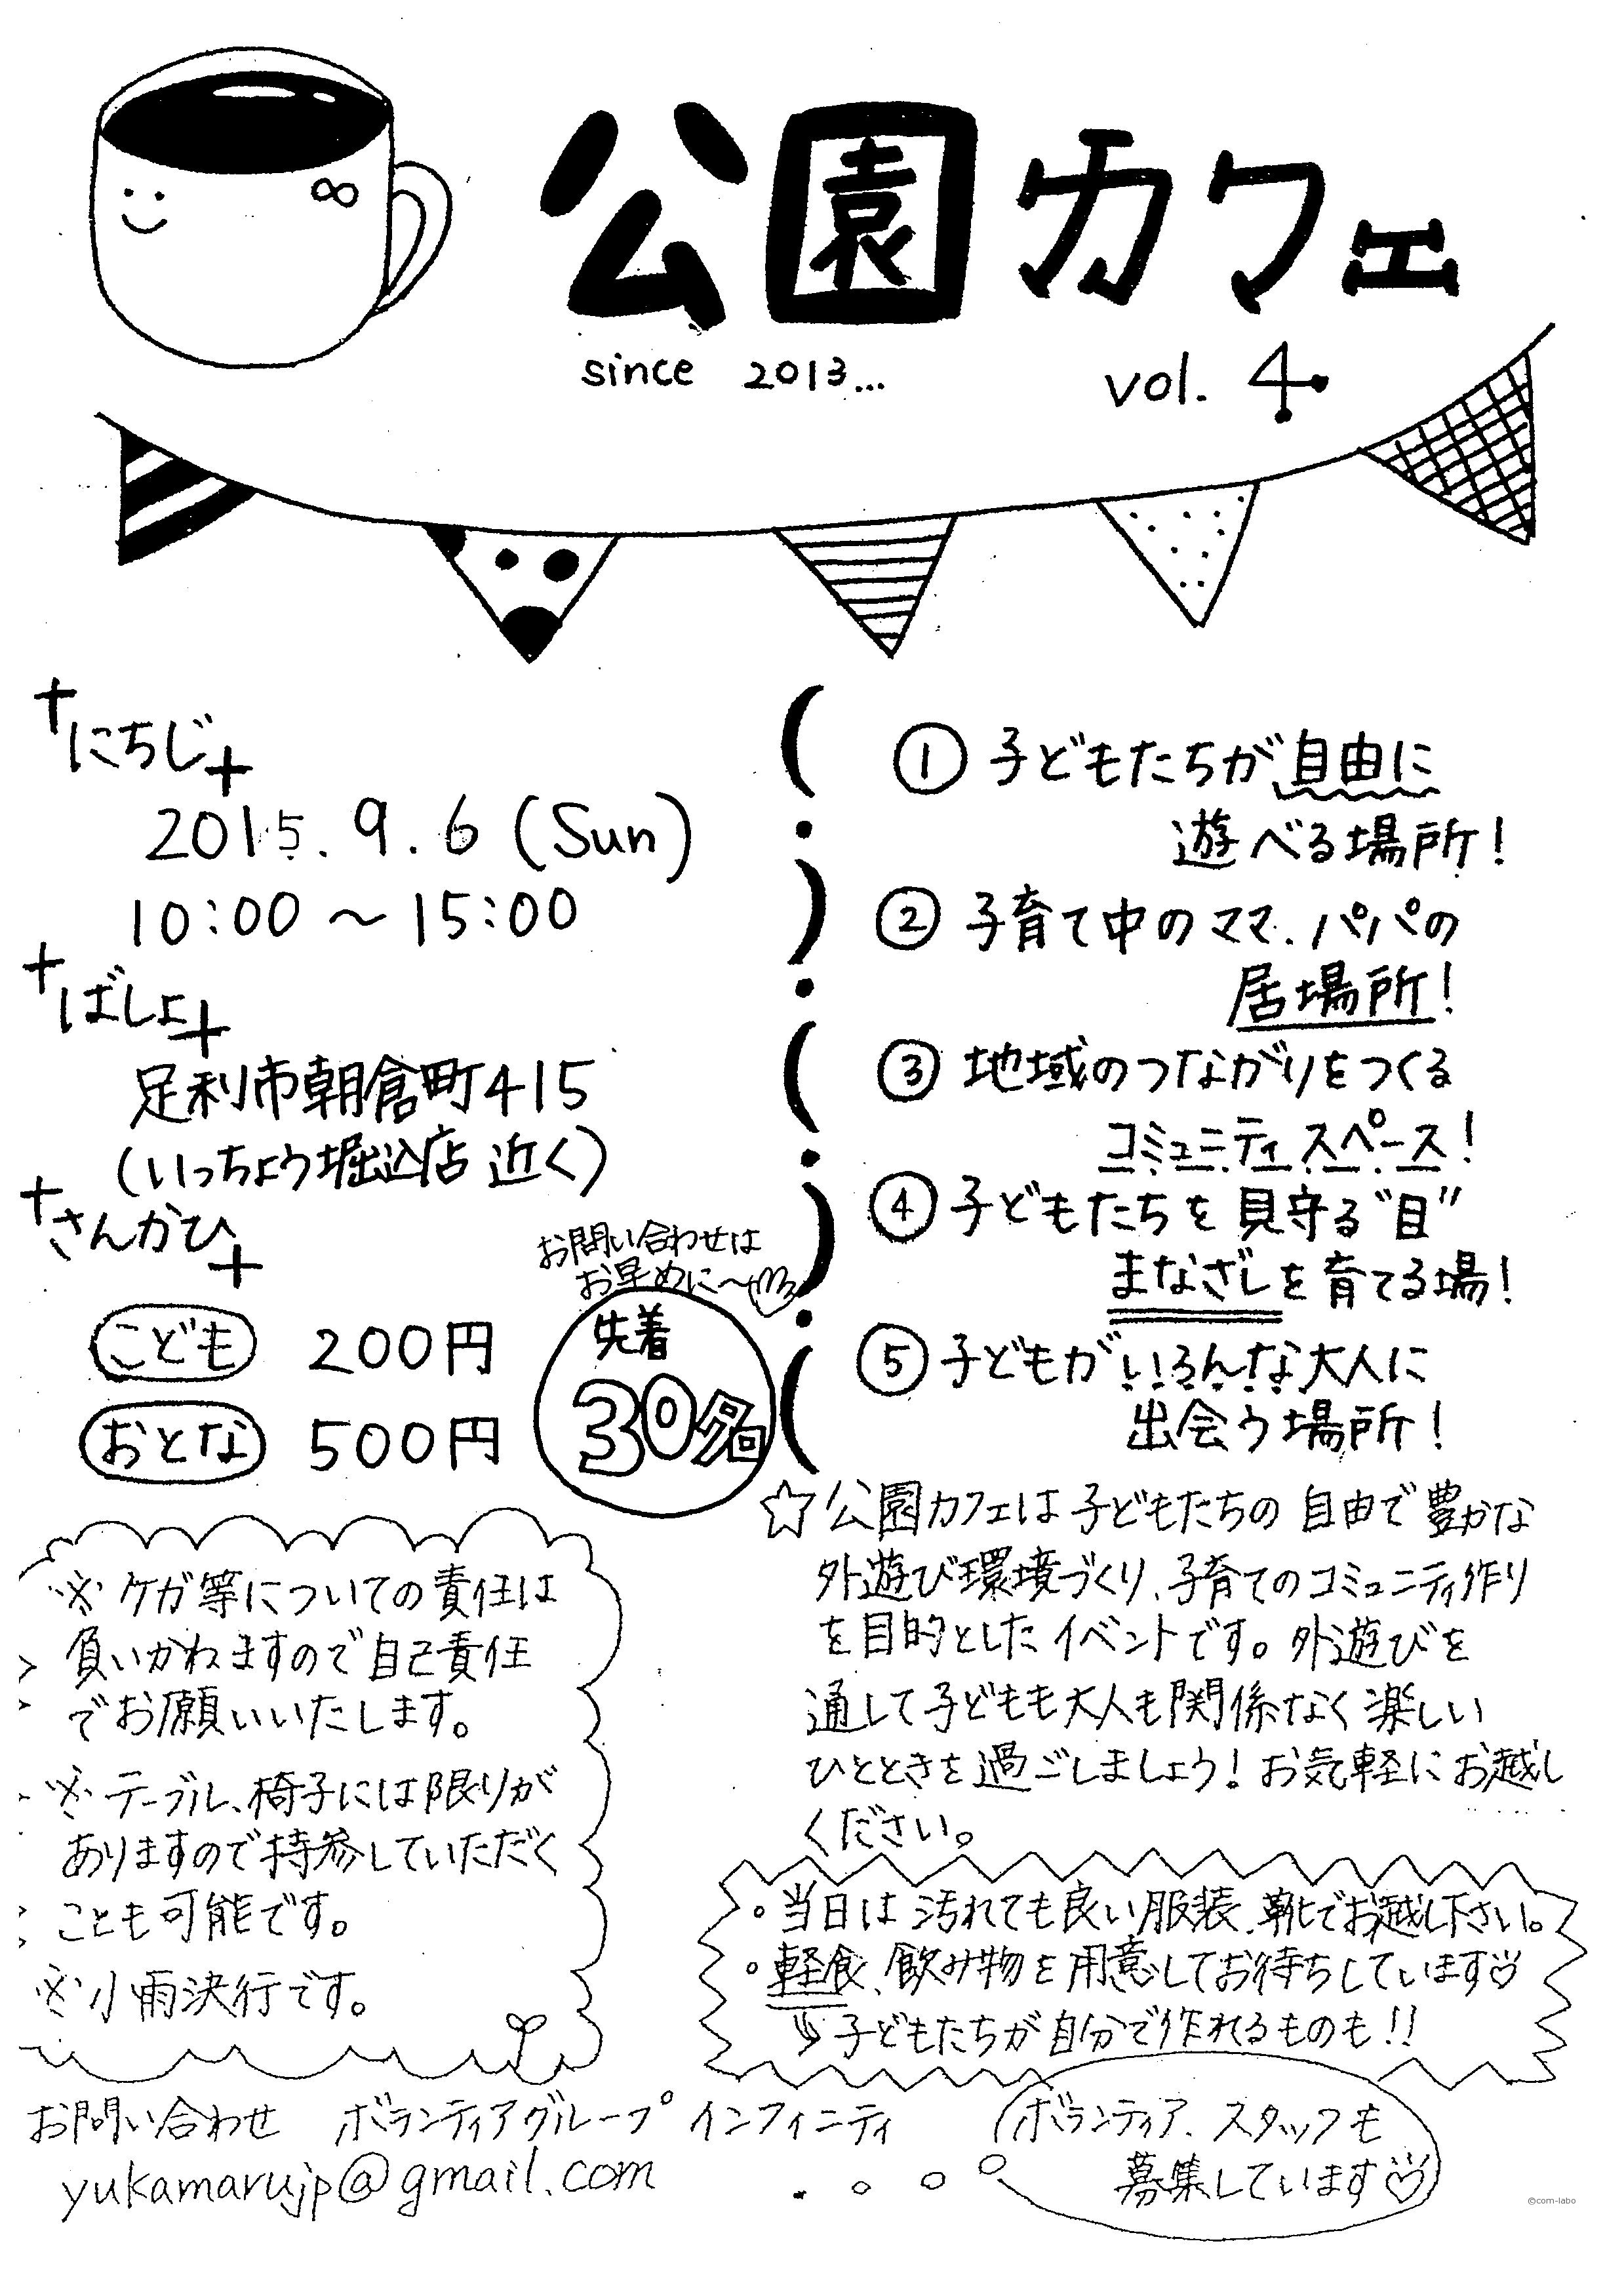 公園カフェ
since 2013...
vol. 4
にちじ
2015.9.6 (Sun)
10:00～15:00
ばしょ
足利市朝倉町415
(いっちょう堀込店 近く)
さんかひ
こども 200円
おとな 500円
お問い合わせは
お早めに～
先着
30名
① 子どもたちが自由に
遊べる場所!
② 子育て中のママ、パパの
居場所!
③ 地域のつながりをつくる
コミュニティスペース!
④ 子どもたちを見守る"目"
まなざしを育てる場!
⑤ 子どもがいろんな大人に
出会う場所!
☆公園カフェは子どもたちの自由で豊かな
外遊び環境づくり、子育てのコミュニティ作り
を目的としたイベントです。外遊びを
通して子どもも大人も関係なく楽しい
ひとときを過ごしましょう!お気軽にお越し
ください。
※ケガ等についての責任は
負いかねますので自己責任
でお願いいたします。
※テーブル、椅子には限りが
ありますので持参していただく
ことも可能です。
※小雨決行です。
。当日は汚れても良い服装、靴でお越し下さい。
。軽食、飲み物を用意してお待ちしています♡
↳子どもたちが自分で作れるものも!!
お問い合わせ ボランティアグループ インフィニティ
yukamarujp@gmail.com
ボランティア、スタッフも
募集しています♡
©com-labo